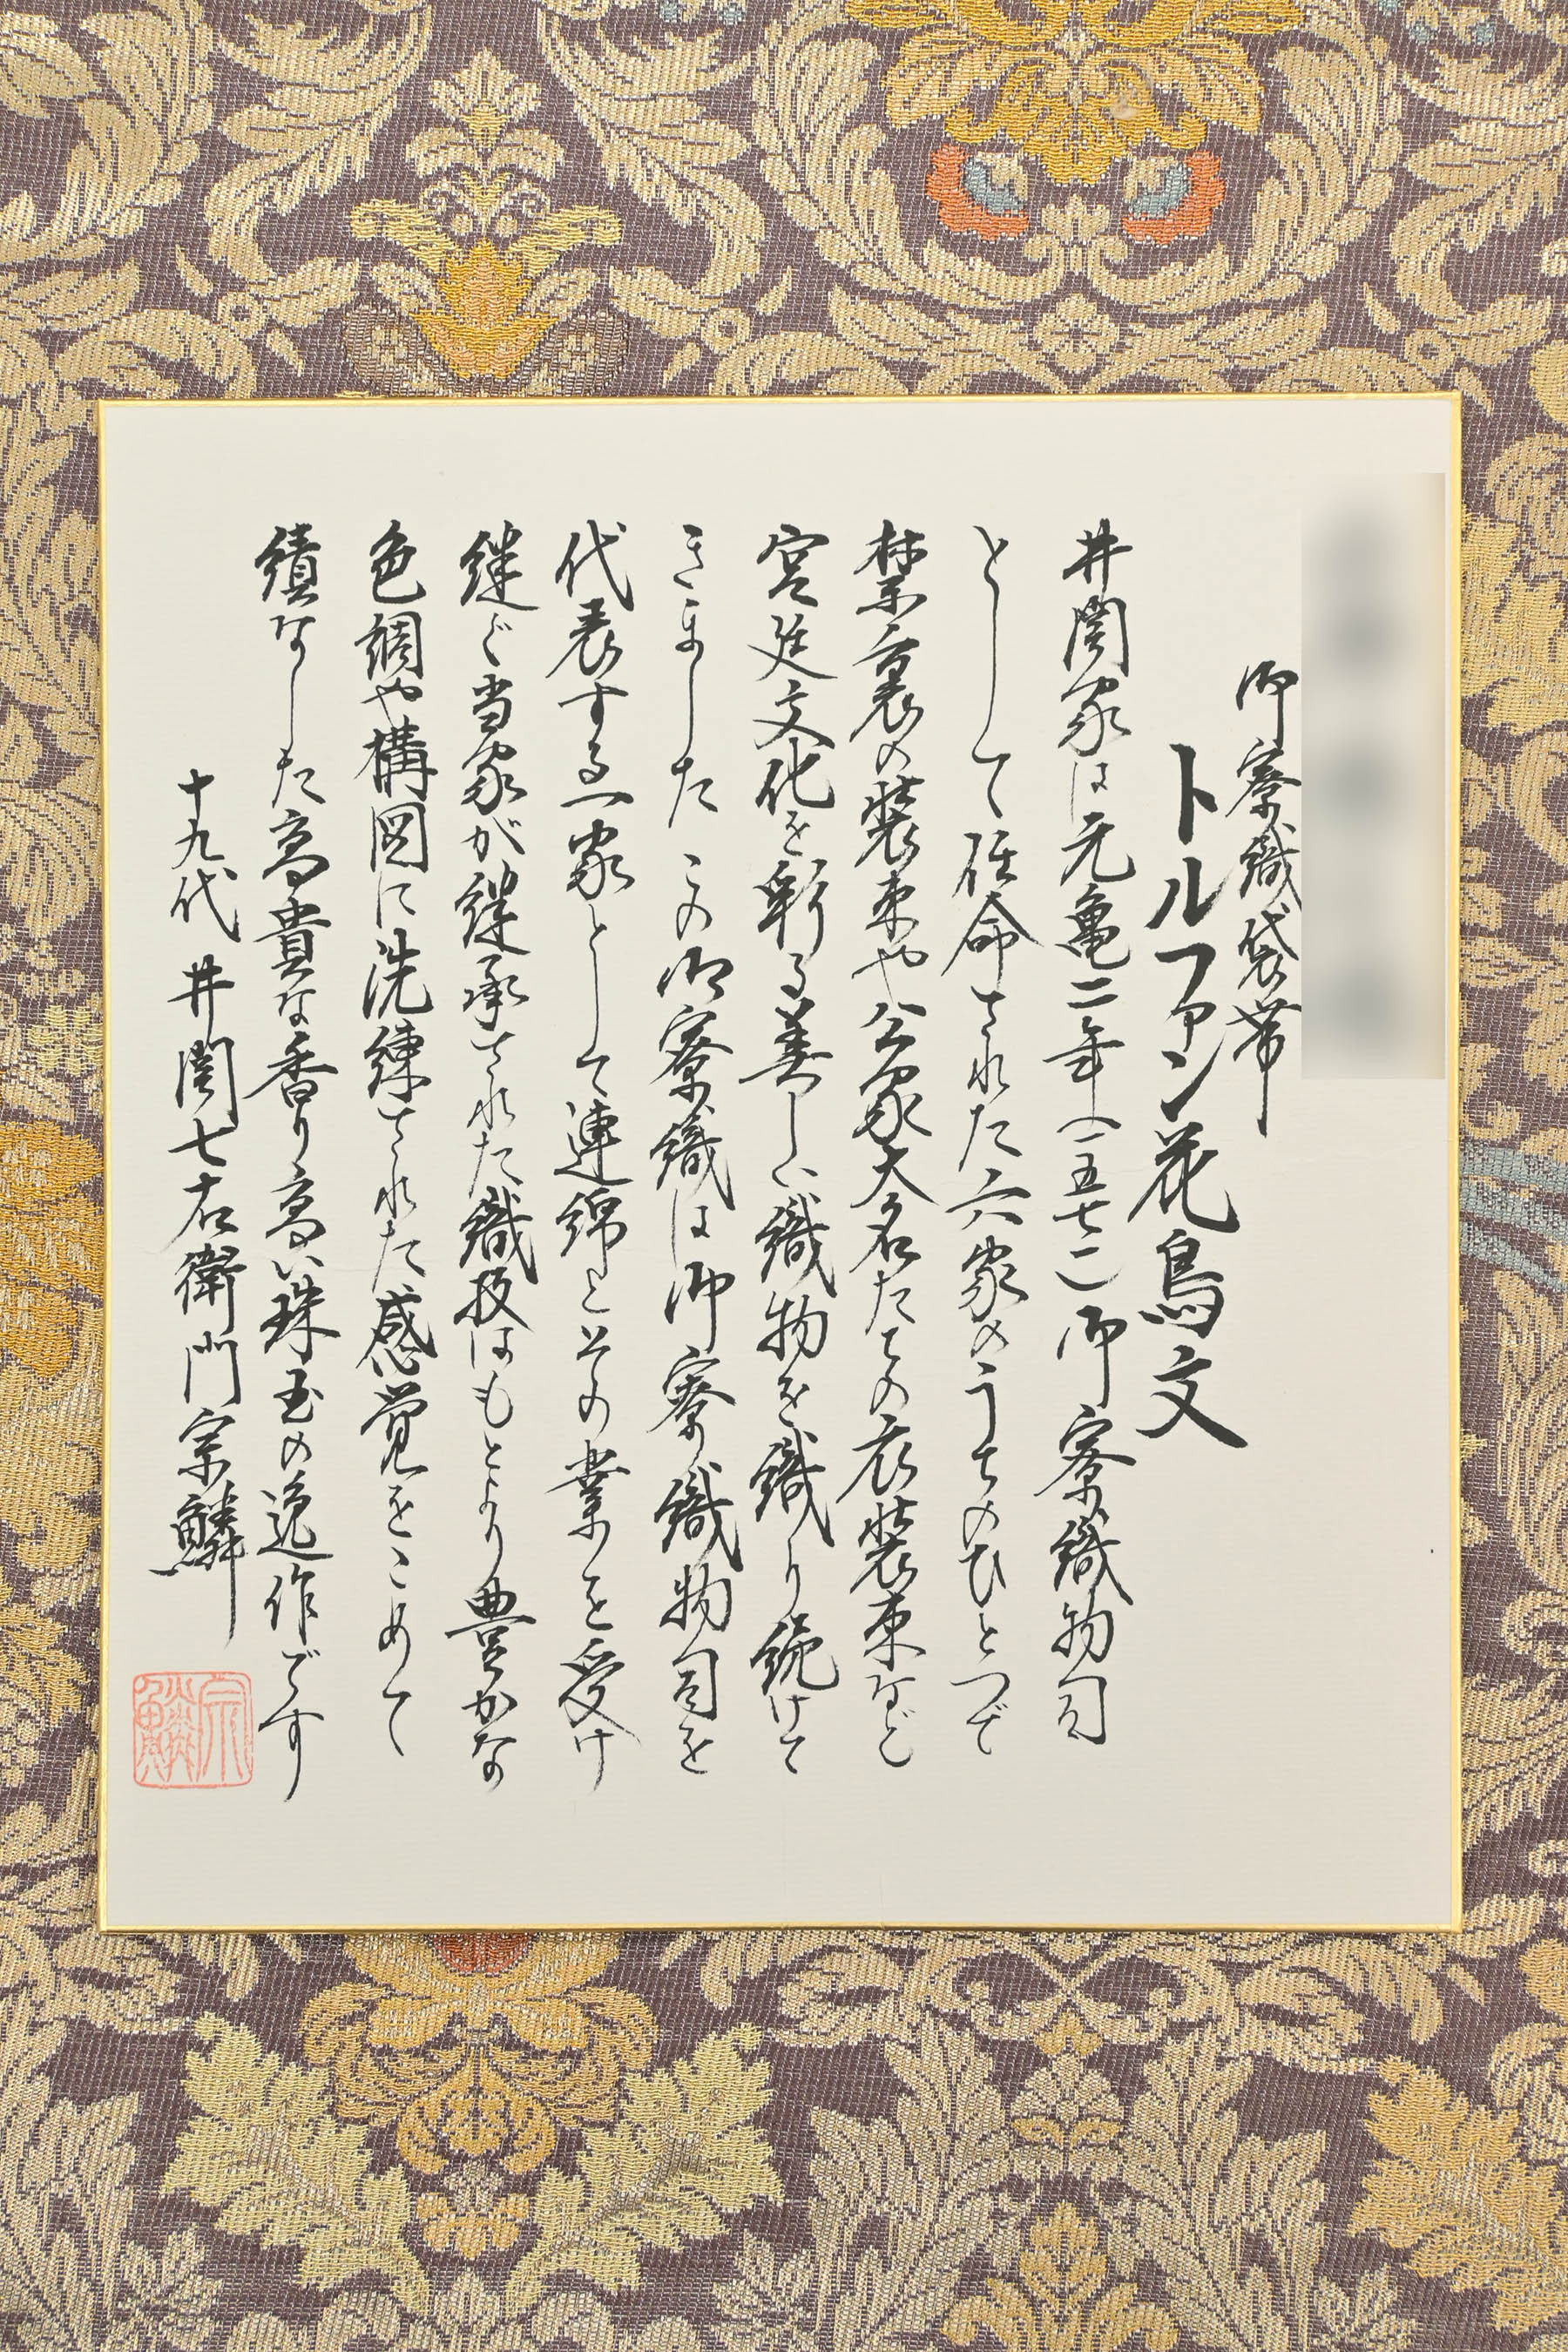 御寮織袋帯
トルファン花鳥文
井関家は元亀二年（一五七一）御寮織物司
として任命された六家のうちのひとつで
禁裏の装束や公家大名たちの衣装束など
宮廷文化を彩る美しい織物を織り続けて
きました この御寮織は御寮織物司を
代表する一家として連綿とその業を受け
継ぐ当家が継承された織技はもとより豊かな
色調や構図に洗練された感覚をこめて
績なした高貴な香り高い珠玉の逸作です
十九代 井関七右衛門宗鱗
宗鱗